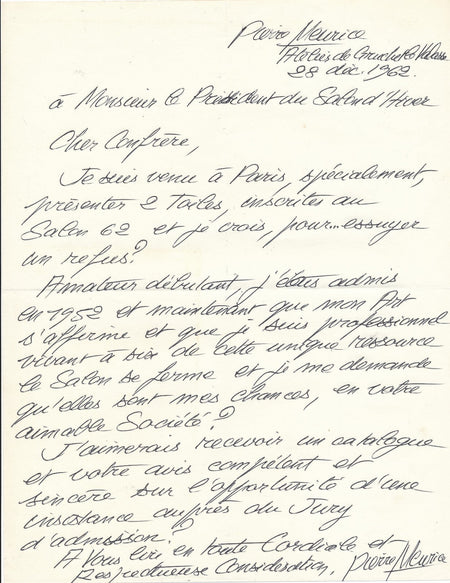 Pierre Meurice
Atelier de Gruchet le Valasse
28 déc. 1962.
à Monsieur le Président du Salon d'Hiver
Cher Confrère,
Je suis venu à Paris, spécialement,
présenter 2 Toiles, inscrites au
Salon 62 et je crois, pour... essuyer
un refus?
Amateur débutant, j'étais admis
en 1952 et maintenant que mon Art
s'affirme et que je suis professionnel
vivant à six de cette unique ressource
le Salon se ferme et je me demande
qu'elles sont mes chances, en votre
aimable Société?
J'aimerais recevoir un catalogue
et votre avis compétent et
sincère sur l'opportunité d'une
insistance auprès du Jury
d'admission.
A Vous lire en toute Cordiale et
Respectueuse Considération,
Pierre Meurice